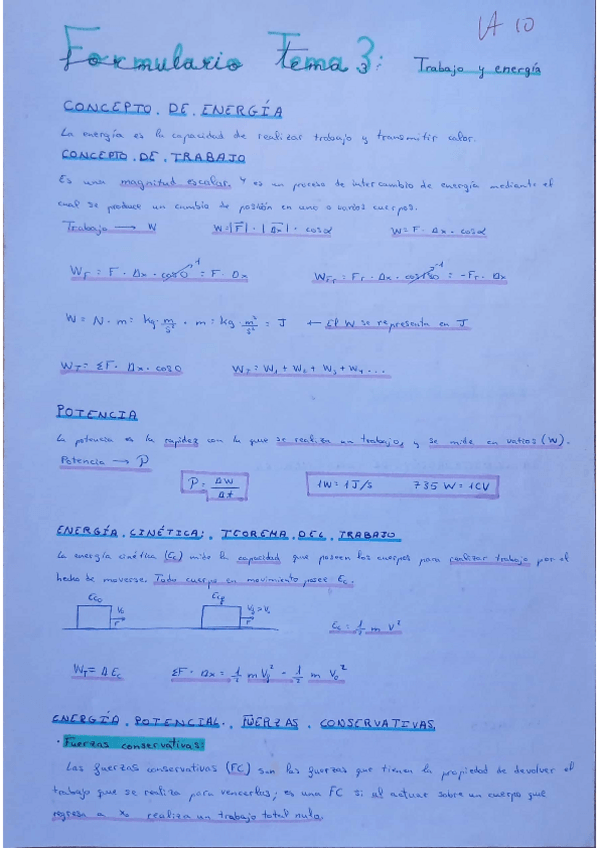 10
Formulario Tema 3: Trabajo y energía
CONCEPTO DE ENERGÍA
La energía es la capacidad de realizar trabajo y transmitir calor.
CONCEPTO DE TRABAJO
Es una magnitud escalar y es un proceso de intercambio de energía mediante el
cual se produce un cambio de posición en uno o varios cuerpos.
Trabajo → W W=|F|·|Δx|·cosα W=F·Δx·cosα
W_F = F·Δx·cos0 = F·Δx W_Fr = Fr·Δx·cos180 = -Fr·Δx
W = N·m = kg·m/s²·m = kg·m²/s² = J ← El W se representa en J
W_T = ΣF·Δx·cos0 W_T = W₁+W₂+W₃+W₄...
POTENCIA
La potencia es la rapidez con la que se realiza un trabajo, y se mide en vatios (W).
Potencia → P
P = ΔW/Δt 1W=1J/s 735 W=1CV
ENERGÍA CINÉTICA: TEOREMA DEL TRABAJO
La energía cinética (Ec) mide la capacidad que poseen los cuerpos para realizar trabajo por el
hecho de moverse. Todo cuerpo en movimiento posee Ec.
Ec₀ Ec_f
V₀ V_f>V₀
F F
Ec=1/2 m V²
W_T=ΔEc ΣF·Δx=1/2 m V_f² - 1/2 m V₀²
ENERGÍA POTENCIAL. FUERZAS CONSERVATIVAS
· Fuerzas conservativas:
Las fuerzas conservativas (FC) son las fuerzas que tienen la propiedad de devolver el
trabajo que se realiza para vencerlas; es una FC si al actuar sobre un cuerpo que
regresa a x₀ realiza un trabajo total nulo.